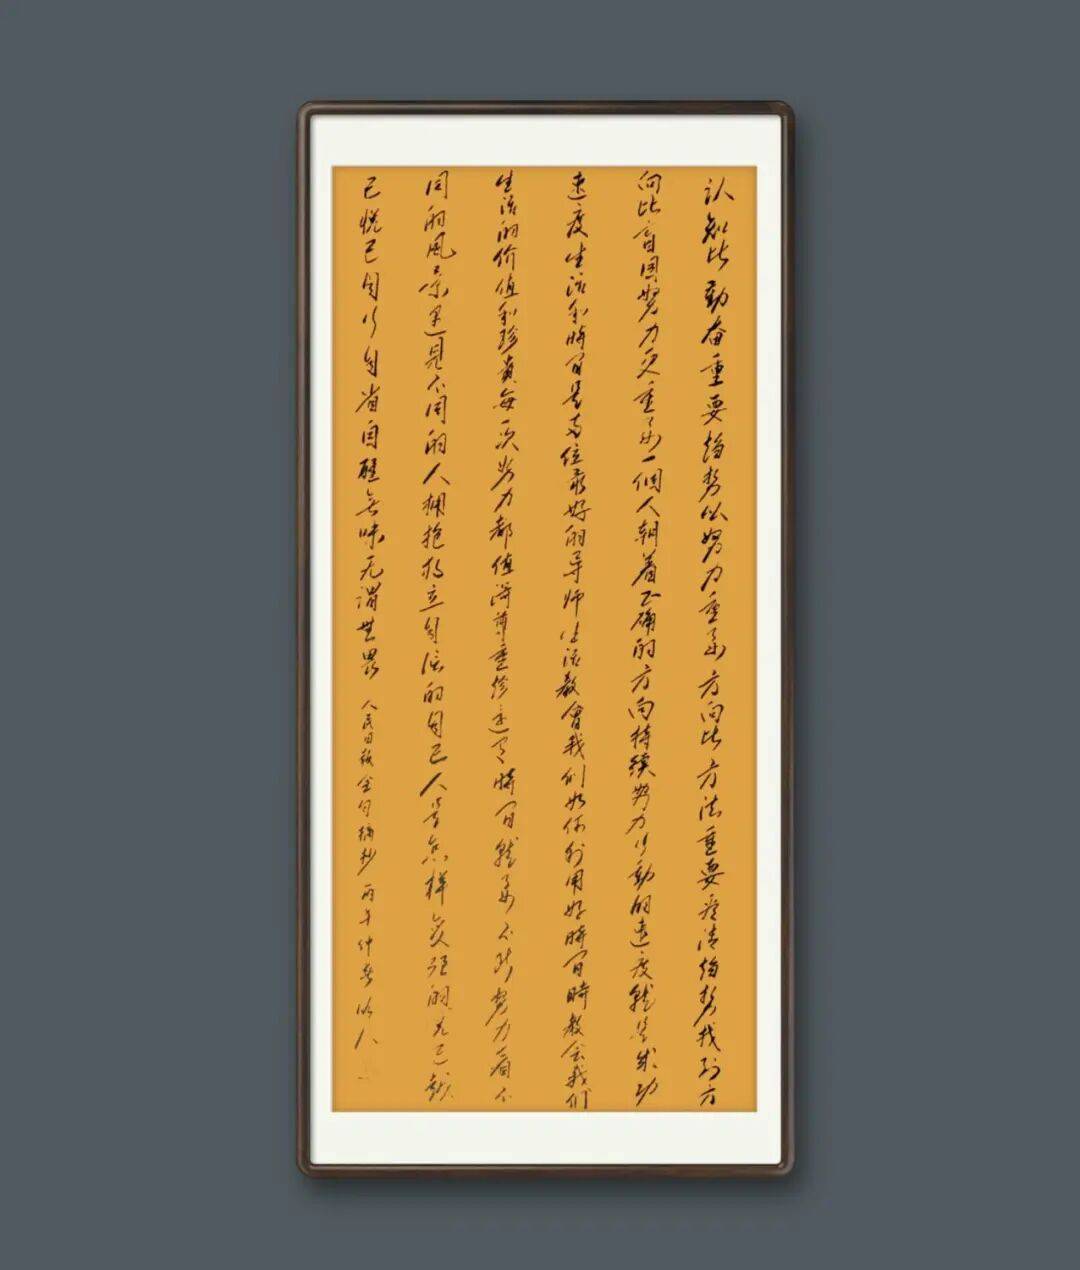 认知比勤奋重要趋势比努力重要方向比方法重要看清趋势找到方
向比盲目努力更重要一個人朝着正确的方向持续努力行動的速度就是成功
速度生活和時间是两位最好的导师生活教會我们如何利用好時间時教会我们
生活的价值和珍贵每一次努力都值得尊重珍時间就要不断努力看不
同的风景遇见不同的人拥抱独立自信的自己人怎样变强的己越
己悦己自行自省自醒味无谓世畏 人民日报金句摘抄 丙午仲春 人